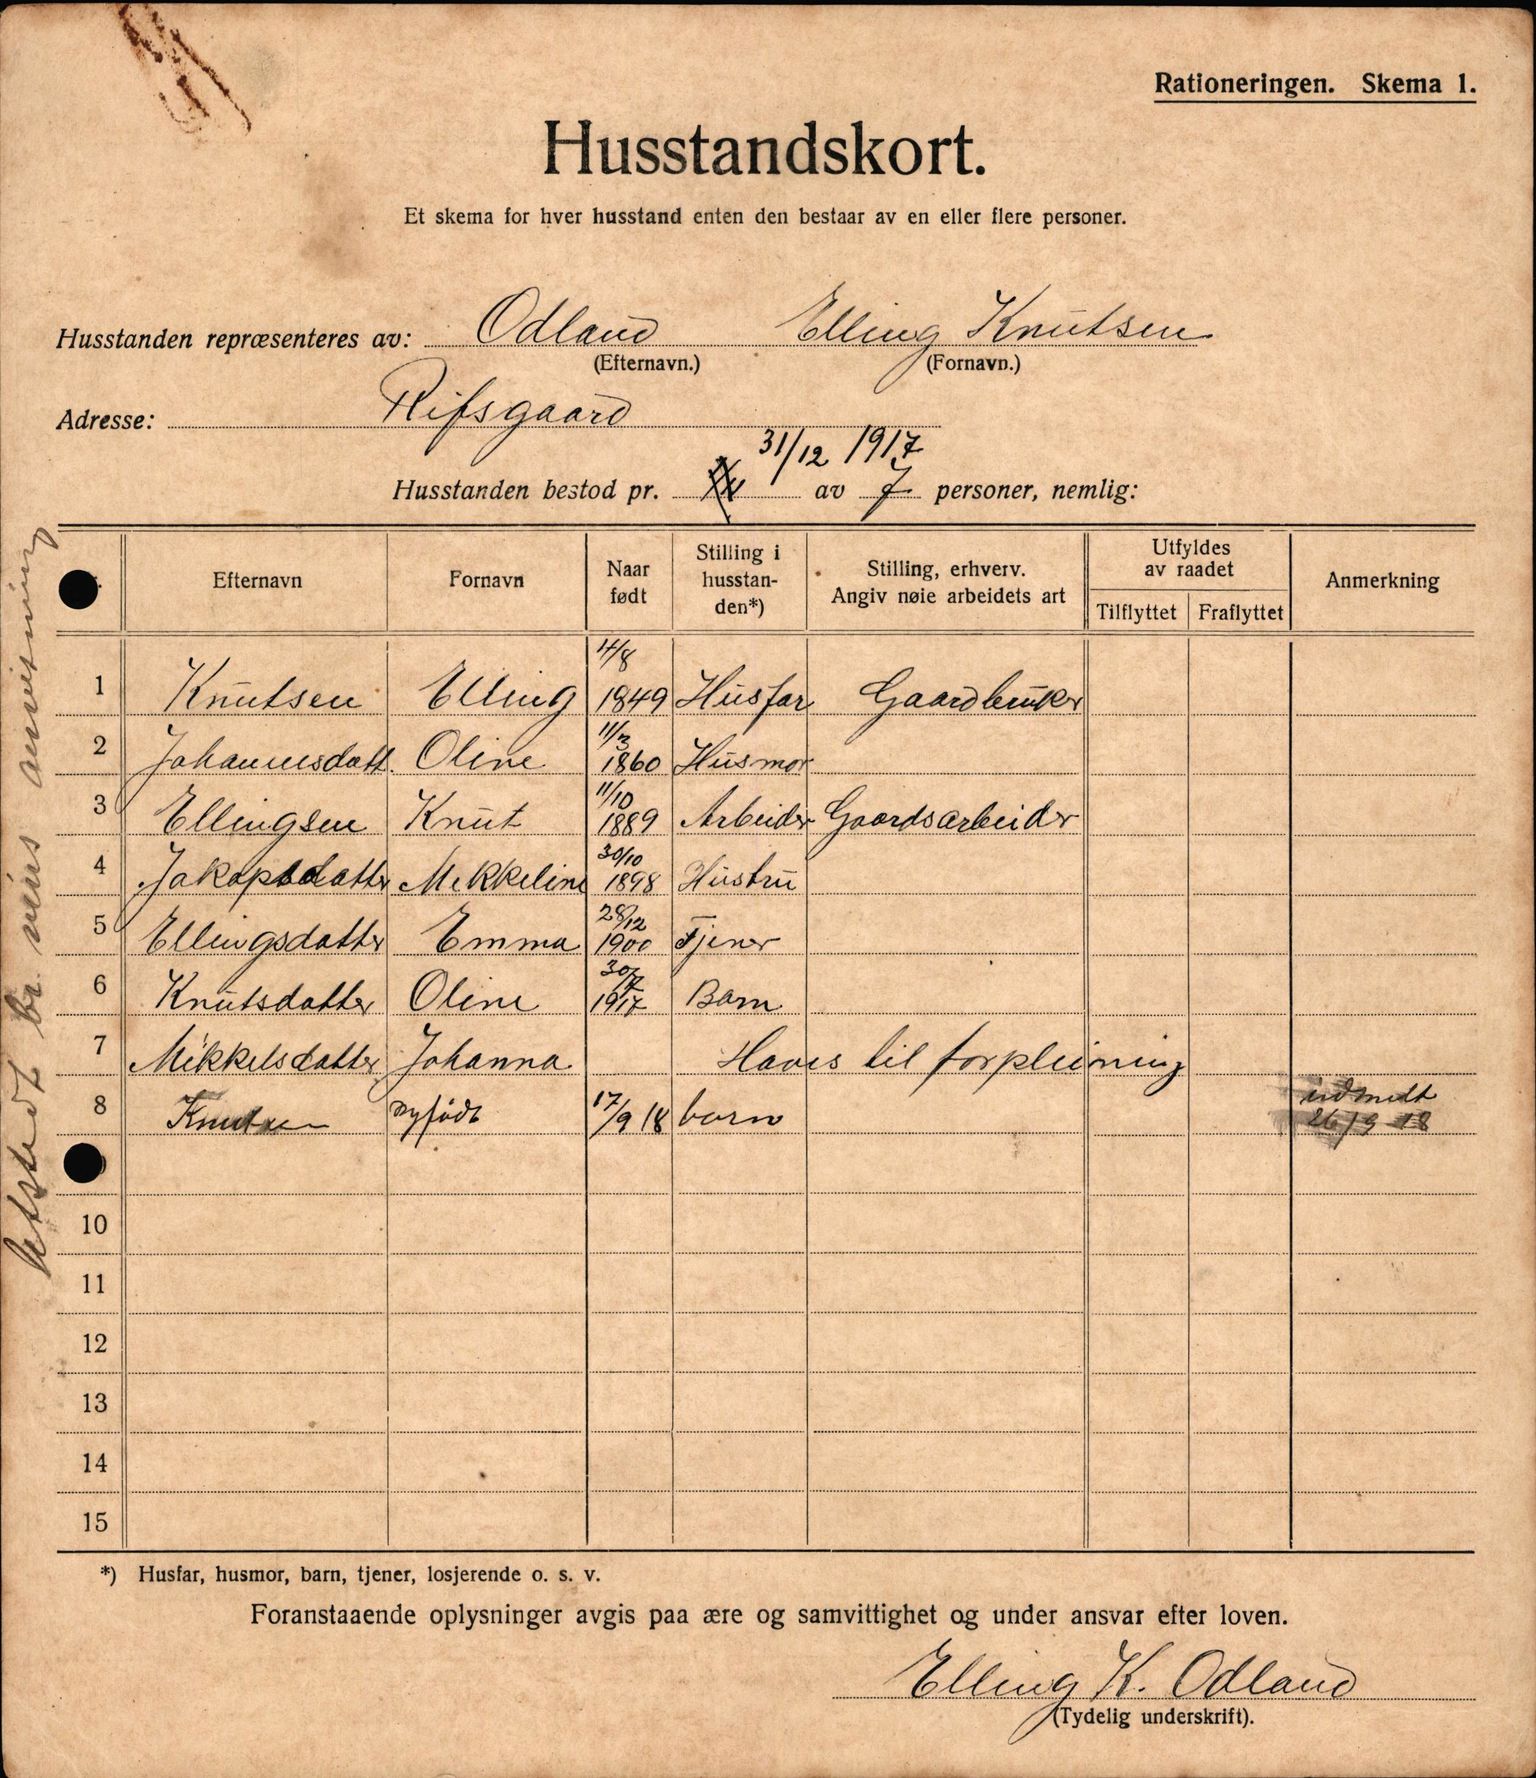 Rationeringen. Skema 1.
Husstandskort.
Et skema for hver husstand enten den bestaar av en eller flere personer.
Husstanden repræsenteres av: Odland Elling Knutsen
(Efternavn.) (Fornavn.)
Adresse: Rifsgaard
31/12 1917
Husstanden bestod pr. av 7 personer, nemlig:
Efternavn Fornavn Naar født Stilling i husstan-den*) Stilling, erhverv. Angiv nøie arbeidets art Utfyldes av raadet Tilflyttet Fraflyttet Anmerkning
1 Knutsen Elling 4/8 1849 Husfar Gaardbruker
2 Johannesdatt. Oline 11/3 1860 Husmor
3 Ellingsen Knut 11/10 1889 Arbeider Gaardsarbeider
4 Jakopsdatter Mekkeline 30/10 1898 Hustru
5 Ellingsdatter Emma 28/12 1900 Tjener
6 Knutsdatter Oline 30/7 1917 Barn
7 Mikkelsdatter Johanna Haves til forpleining
8 Knutsen nyfødt 17/9 18 barn indmeldt 26/9 18
10
11
12
13
14
15
*) Husfar, husmor, barn, tjener, losjerende o. s. v.
Foranstaaende oplysninger avgis paa ære og samvittighet og under ansvar efter loven.
Elling K. Odland
(Tydelig underskrift).
anvisning